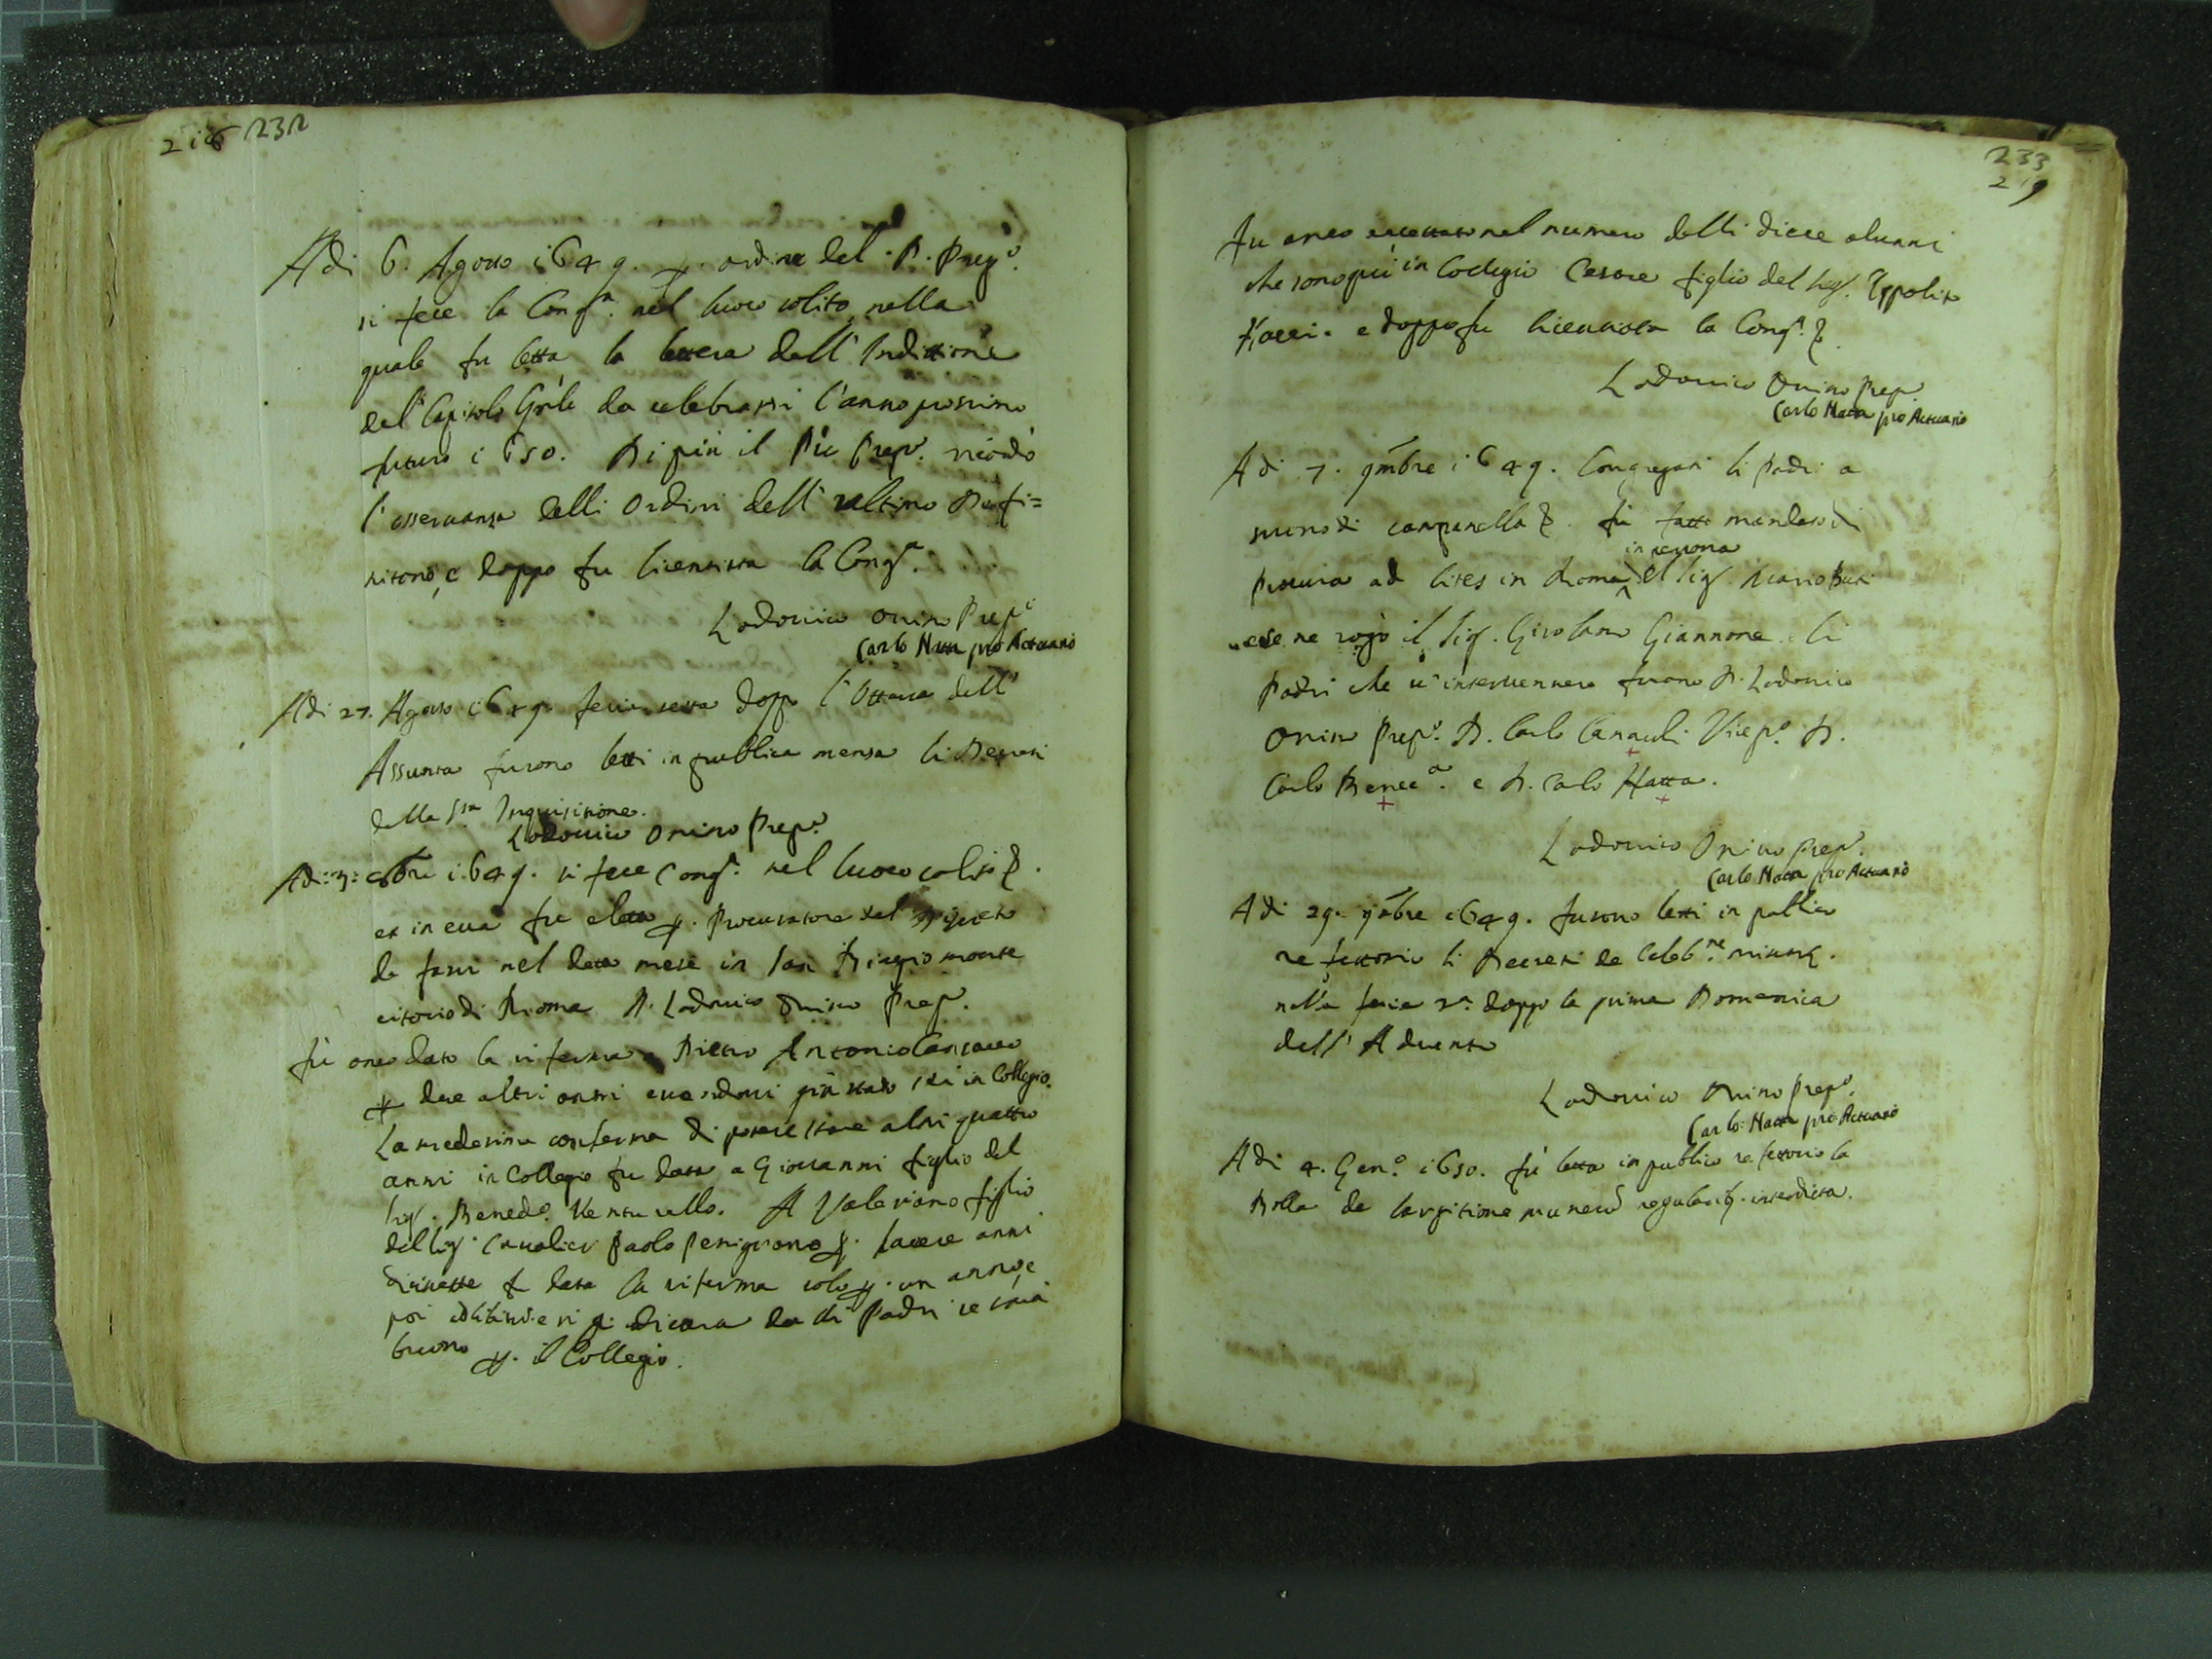 2i8 232
Adi 6. Agosto i649. p. ordine del P. Prepº.
si fece la Congª. nel luoco solito, nella
quale fu letta la lettera dell' Indittione
del Capitolo Gñle da celebrarsi l'anno prossimo
futuro i650. Di più il Prepº. ricordò
l'osservanza delli Ordini dell' ultimo Deffi=
nitorio, e doppo fu licentiata la Congª.
Lodovico Orino Prepº
Carlo Natta pro Actuario
Adi 27. Agosto i649. feria sesta doppo l'Ottava dell'
Assunta furono letti in publica mensa li Decreti
della Sta Inquisitione.
Lodovico Orino Prepº.
Adi: 3: i649. si fece Congª. nel luoco solito
et in essa fu eletto p. Procuratore del
da farsi nel detto mese in San Biagio monte
citorio di Roma D. Lodovico Orino Prepº.
fù anco dato la rifferma a Pietro Antonio
p due altri anni essendovi già stato sei in Collegio.
La medesima conferma di potere stare altri quattro
anni in Collegio fu data a Giovanni figlio del
Sigr. Benedº. Venturello. A Valeriano figlio
del Sigr. Cavalier Paolo Perignano p. havere anni
fu data la rifferma solo p. un anno, e
poi da di Padri se sarà
buono p. il Collegio.
233
219
Fu anco accettato nel numero delli diece alunni
che sono più in Collegio Cesare figlio del Sigr. Ippolito
e doppo fu licentiata la Congª.
Lodovico Orino Prepº.
Carlo Natta pro Actuario
Adi 7. 9mbre i649. Congregati li Padri a
suono di campanella fù fatto mandato di
in persona
Procura ad lites in Roma del Sigr. Mario
e se ne rogò il Sigr. Girolamo Giannone e li
Padri che v'intervennero furono D. Lodovico
Orino Prepº. D. Carlo Vicepº. D.
Carlo e D. Carlo Natta.
Lodovico Orino Prepº.
Carlo Natta pro Actuario
Adi 29. 9mbre i649. furono letti in publico
refettorio li Decreti de Celebne. missar.
nella feria 2ª. doppo la prima Domenica
dell' Advento
Lodovico Orino Prepº.
Carlo Natta pro Actuario
Adi 4. Genº. i650. fù letta in publico refettorio la
Bolla de largitione munerū regularibq. interdicta.